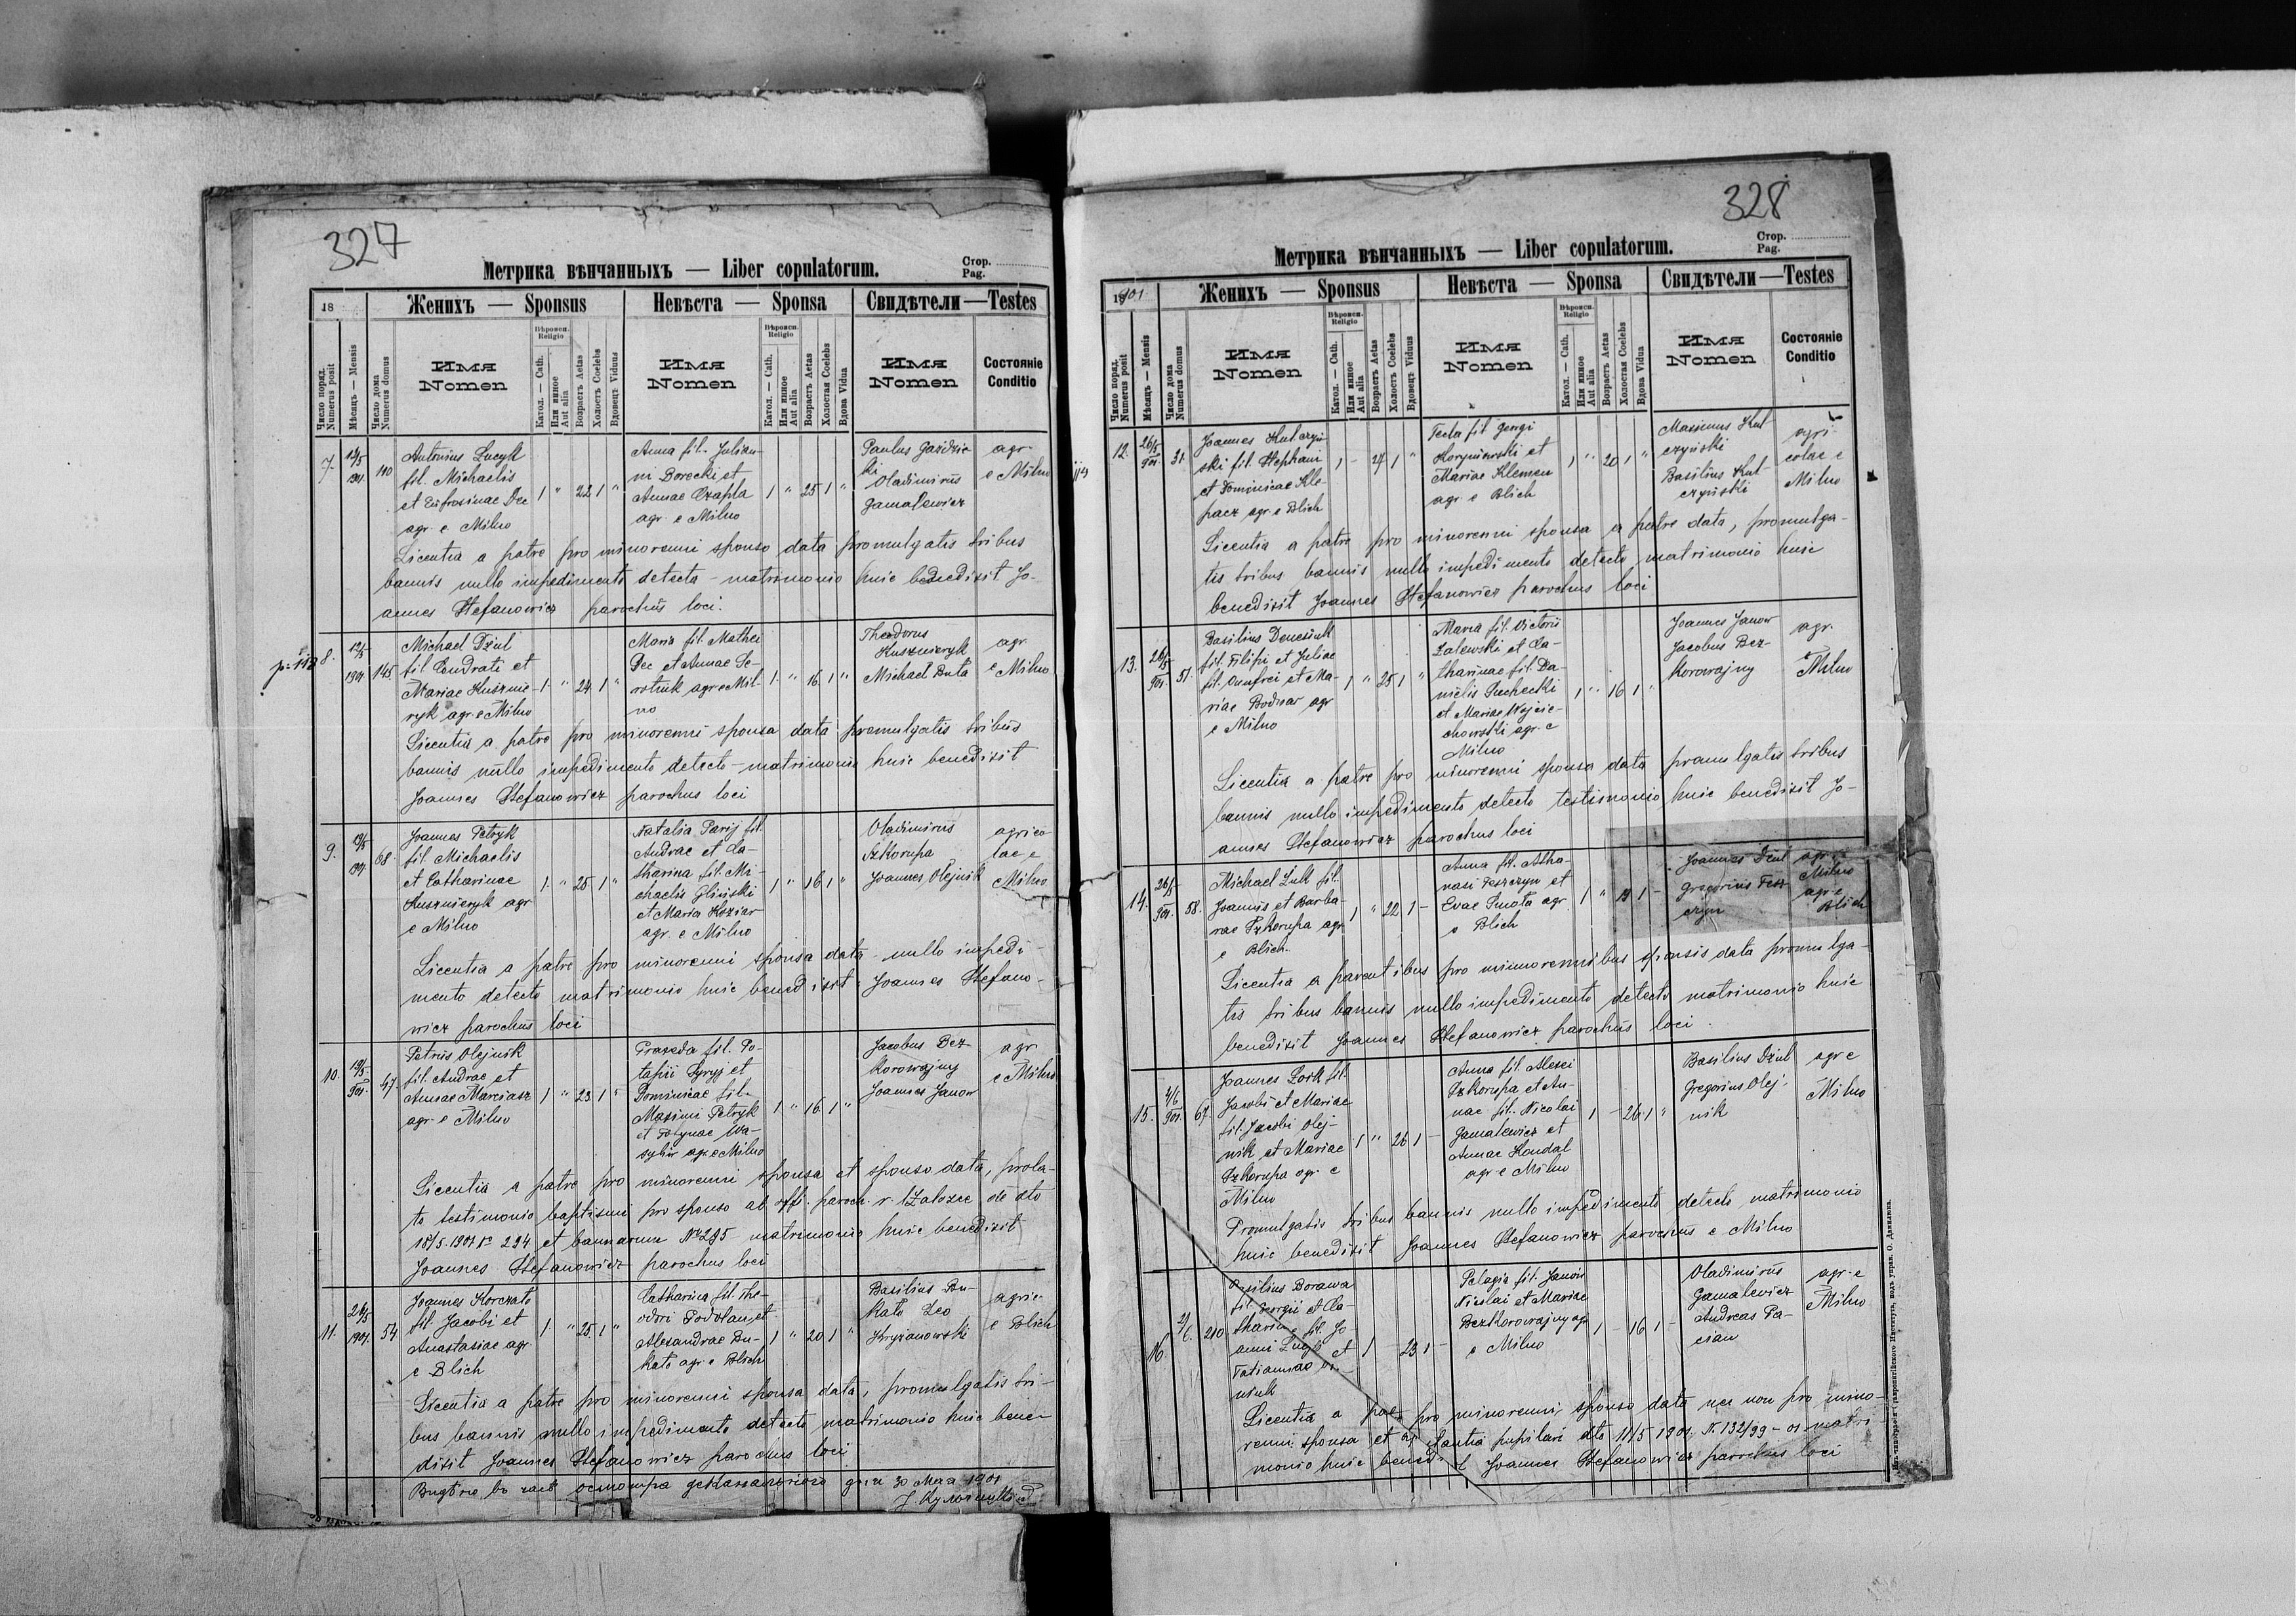 327
Метрика вѣнчанныхъ — Liber copulatorum.
Стор.
Pag.
18
Женихъ — Sponsus
Невѣста — Sponsa
Свидѣтели — Testes
Число поряд. Numerus posit
Мѣсяцъ — Mensis
Число дома Numerus domus
Имя Nomen
Вѣроисп. Religio
Катол. — Cath.
Или инное Aut alia
Возрастъ Aetas
Холостъ Coelebs
Вдовецъ Viduus
Имя Nomen
Вѣроисп. Religio
Катол. — Cath.
Или инное Aut alia
Возрастъ Aetas
Холостая Coelebs
Вдова Vidua
Имя Nomen
Состояніе Conditio
7. 12/5 1901. 110
Antonius Lucyk
fil. Michaelis
et Eufrosinae Dec
agr. e Milno
1 " 22 1 "
Anna fil. Julia-
ni Borecki et
Annae Czapla
agr. e Milno
1 " 25 1 "
Paulus Gaździc
ki
Vladimirus
Gamalewicz
agr.
e Milno
Licentia a patre pro minorenni sponso data promulgatis tribus
bannis nullo impedimento detecto – matrimonio huic benedixit Jo-
annes Stefanowicz parochus loci.
8. 12/5 1901 145
Michael Dżul
fil. Condrati et
Mariae Kusznie-
ryk agr. e Milno
1 " 24 1 "
Maria fil. Mathei
Dec et Annae Se-
rotiuk agr. e Mil-
no
1 " 16 1 "
Theodorus
Kusznieryk
Michael Buta
agr.
e Milno
Licentia a patre pro minorenni sponsa data promulgatis tribus
bannis nullo impedimento detecto – matrimonio huic benedixit
Joannes Stefanowicz parochus loci
9. 19/5 1901. 68
Joannes Petryk
fil. Michaelis
et Catharinae
Kusznieryk agr
e Milno
1 " 25 1 "
Natalia Parij fil.
Andrae et Ca-
tharina fil. Mi-
chaelis Gliński
et Maria Koziar
agr. e Milno
1 " 16 1 "
Vladimirus
Szkorupa
Joannes Olejnik
agrico-
lae e
Milno
Licentia a patre pro minorenni sponsa data – nullo impedi-
mento detecto matrimonio huic benedixit Joannes Stefano-
wicz parochus loci
10. 19/5 901. 47
Petrus Olejnik
fil. Andrae et
Annae Marciasz
agr. e Milno
1 " 23 1 "
Praxeda fil. Po-
tapii Pyryj et
Dominicae fil.
Maximi Petryk
et Wa-
syliw agr. e Milno
1 " 16 1 "
Jacobus Bez-
korowajny
Joannes Janow
agr
e Milno
Licentia a patre pro minorenni sponsa et sponso data, prola-
to testimonio baptismi pro sponso ab offi. paroch. r. l. Załozce de dto
18/5 1901 No 294 et bannorum No 295 matrimonio huic benedixit
Joannes Stefanowicz parochus loci
11. 24/5 1901. 54
Joannes Korczato
fil. Jacobi et
Anastasiae agr.
e Blich
1 " 25 1 "
Catharina fil. The-
odori Podolan et
Alexandrae Du-
kato agr. e Blich
1 " 20 1 "
Basilius Du-
kato Leo
Hryżanowski
agric.
e Blich
Licentia a patre pro minorenni sponsa data, promulgatis tri-
bus bannis nullo impedimento detecto matrimonio huic bene-
dixit Joannes Stefanowicz parochus loci
осмотра деканального дня 30 Мая 1901
328
Метрика вѣнчанныхъ — Liber copulatorum.
Стор.
Pag.
1901
Женихъ — Sponsus
Невѣста — Sponsa
Свидѣтели — Testes
Число поряд. Numerus posit
Мѣсяцъ — Mensis
Число дома Numerus domus
Имя Nomen
Вѣроисп. Religio
Катол. — Cath.
Или инное Aut alia
Возрастъ Aetas
Холостъ Coelebs
Вдовецъ Viduus
Имя Nomen
Вѣроисп. Religio
Катол. — Cath.
Или инное Aut alia
Возрастъ Aetas
Холостая Coelebs
Вдова Vidua
Имя Nomen
Состояніе Conditio
12. 26/5 901. 31
Joannes Kutczyń
ski fil. Stephani
et Dominicae Kle-
pacz agr. e Blich
1 – 24 1 "
Tecla fil Georgi
Horyniowski et
Mariae Klemen
agr. e Blich
1 " 20 1 "
Maximus Kut
czyński
Basilius Kut-
czyński
agri-
colae e
Milno
Licentia a patre pro minorenni sponsa a patre data, promulga-
tis tribus bannis nullo impedimento detecto, matrimonio huic
benedixit Joannes Stefanowicz parochus loci
13. 26/5 901. 51.
Basilius Denesiuk
fil. Filipi et Juliae
fil. Onufrei et Ma-
riae Bodnar agr
e Milno
1 " 25 1 "
Maria fil. Victorii
Zalewski et Ca-
tharinae fil. Da-
nielis Puchecki
et Mariae Wojcie-
chowski agr. e
Milno
1 " 16 1 "
Joannes Janow
Jacobus Bez-
korowajny
agr.
e Milno
Licentia a patre pro minorenni sponsa data promulgatis tribus
bannis nullo impedimento detecto testimonio huic benedixit Jo-
annes Stefanowicz parochus loci
14. 26/5 901. 58.
Michael Luk fil.
Joannis et Barba-
rae Szkorupa agr
e Blich
1 " 22 1 –
Anna fil. Atha-
nasi Feszczyn et
Evae Smota agr
e Blich
1 " 19 1 –
Joannes Dżul
Gregorius Fesz
czyn
agr. e
Milno
agr. e
Blich
Licentia a parentibus pro minorennibus sponsis data promulga-
tis tribus bannis nullo impedimento detecto matrimonio huic
benedixit Joannes Stefanowicz parochus loci.
15. 4/6 901. 67.
Joannes Zoik fil.
Jacobi et Mariae
fil. Jacobi Olej-
nik et Mariae
Szkorupa agr. e
Milno
1 " 26 1 –
Anna fil. Alexei
Szkorupa et An-
nae fil. Nicolai
Gamalewicz et
Annae Kondal
agr. e Milno
1 – 26 1 "
Basilius Dżul
Gregorius Olej-
nik
agr. e
Milno
Promulgatis tribus bannis nullo impedimento detecto matrimonio
huic benedixit Joannes Stefanowicz parochus e Milno
16 2/6. 210
Basilius Borawa
fil. Georgii et Ca-
tharinae fil. Jo-
anni et
Tatiannae
1 23 1 –
Pelagia fil. Janów
Nicolai et Mariae
Bezkorowajny agr
e Milno
1 – 16 1 –
Vladimirus
Gamalewicz
Andreas Pa-
cian
agr. e
Milno
Licentia a patre pro minorenni sponso data nec non pro mino-
renni sponsa et pupilari dto 11/5 1901. N. 132/99 – 01 matri-
monio huic benedixit Joannes Stefanowicz parochus loci